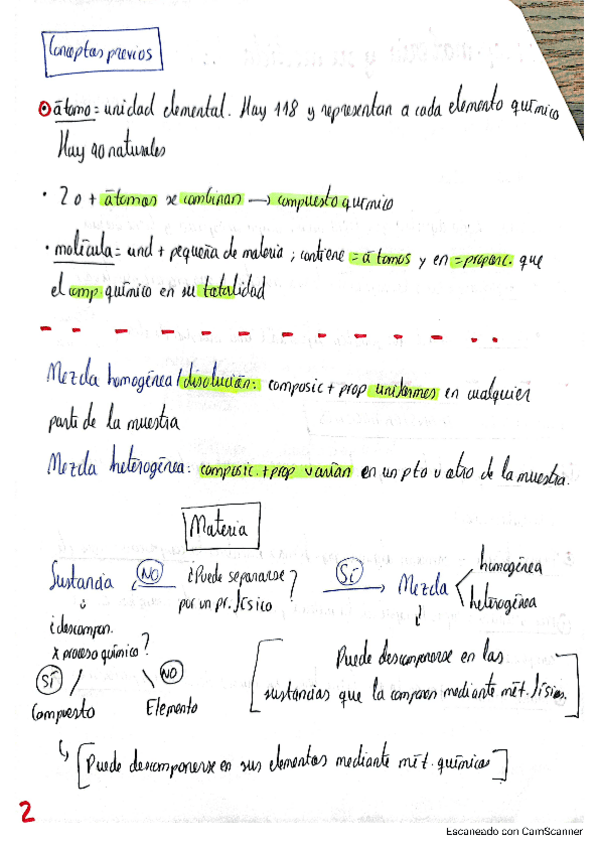 Conceptos previos
átomo = unidad elemental. Hay 118 y representan a cada elemento químico
Hay 90 naturales
· 2 o + átomos se combinan → compuesto químico
· molécula = und + pequeña de materia ; contiene = átomos y en = proporc. que
el comp. químico en su totalidad
Mezcla homogénea / disolución: composic + prop uniformes en cualquier
parte de la muestra
Mezcla heterogénea: composic. + prop varían en un pto u otro de la muestra.
Materia
Sustancia NO ¿Puede separarse por un pr. físico? Sí → Mezcla
homogénea
heterogénea
¿descompon.
x proceso químico?
Sí NO
Compuesto Elemento
Puede descomponerse en las
sustancias que la componen mediante mét. físicos.
[Puede descomponerse en sus elementos mediante mét. químicos]
2
Escaneado con CamScanner